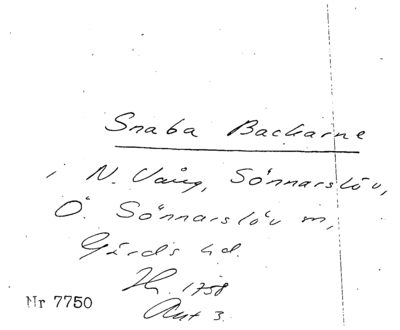 Snaba Backarne
i N. Vång, Sönnarslöv,
Ö. Sönnarslöv sn,
Gärds hd.
1758
Akt 3.
Nr 7750